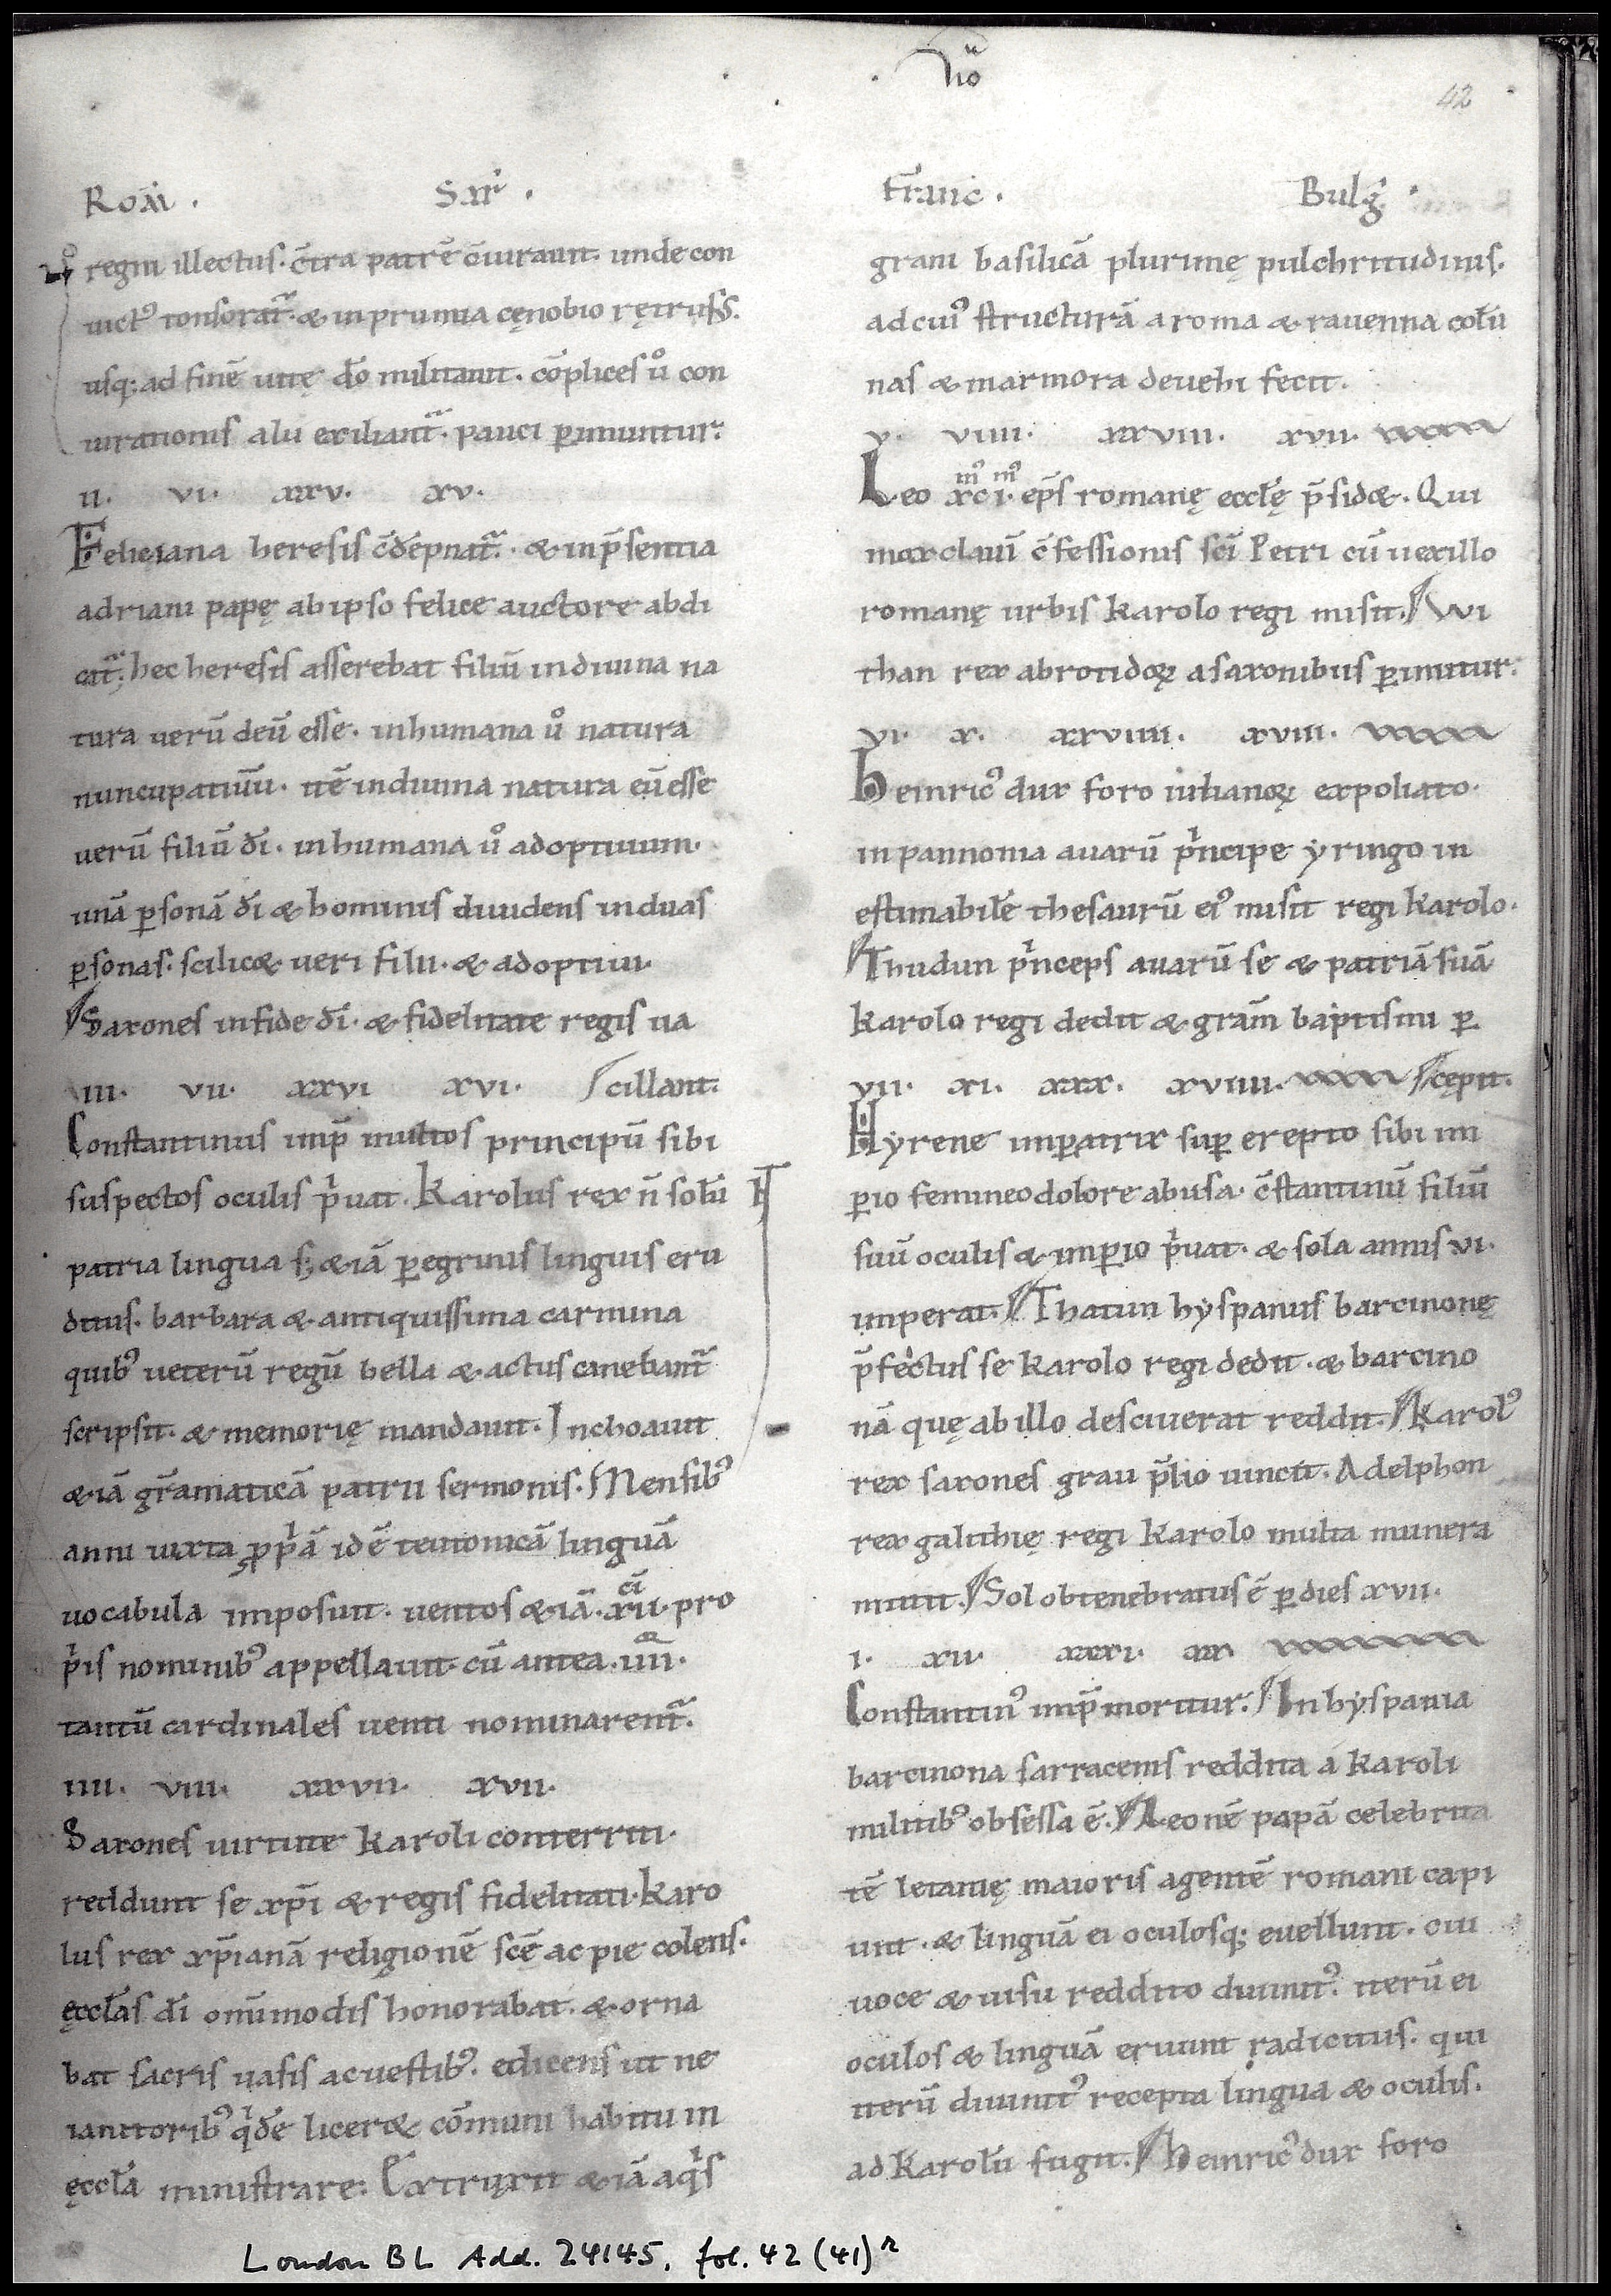 uō
42
Rom̄. Sar̄.
regni illectus. c̄tra patrē c̄iurauit. unde con
uict᾿ tonsorat᷑. & in prumia cęnobio rętruss᾿.
usq; ad finē uitę dō militauit. cōplices ůo con
iurationis alii exiliant᷑. pauci ꝑimuntur.
ii. vi. xxv. xv.
Feliciana heresis c̄dēpnat᷑. & in p̄sentia
adriani papę ab ipso felice auctore abdi
cat᷑; hec heresis asserebat filiū in diuina na
tura uerū deū esse. in humana uͦ natura
nuncupatiuū. itē in diuina natura eū esse
uerū filiū dī. in humana uͦ adoptiuum.
unā ꝑsonā dī & hominis diuidens in duas
ꝑsonas. scilic& ueri filii. & adoptiui.
Saxones in fide dī. & fidelitate regis ua
iii. vii. xxvi xvi. cillant.
Constantinus imp̄ multos principū sibi
suspectos oculis pͥuat. Karolus rex n̄ solū
patria lingua s; & iā ꝑegrinis linguis eru
ditus. barbara & antiquissima carmina
quib᾿ ueterū regū bella & actus canebant᷑
scripsit. & memorię mandauit. Inchoauit
& iā gr̄amaticā patrii sermonis. Mensib᾿
anni iuxta ꝓpͥā idē teutonicā linguā
uocabula imposuit. uentos & iā. xii. ci pro
pͥis nominib᾿ appellauit cū antea. iiii.
tantū cardinales uenti nominarent᷑.
iiii. viii. xxvii. xvii.
Saxones uirtute Karoli conterriti.
reddunt se xp̄i & regis fidelitati. Karo
lus rex xp̄ianā religionē scē ac pie colens.
ęccl̄as dī omīmodis honorabat. & orna
bat sacris uasis ac uestib᾿. edicens ut ne
ianitorib᾿ qͥdē licer& cōmuni habitu in
ęccl̄a ministrare. Extruxit & iā aqͥs
Franc̄. Bulḡ.
grani basilicā plurimę pulchritudinis.
ad cui᾿ structurā a roma & rauenna colū
nas & marmora deuehi fecit.
v. viiii. xxviii. xvii.
Leo xcͫ᾿iͫ᾿. ep̄s romanę eccl̄ę p̄sid&. Qui
mox clauī c̄fessionis scī Petri cū uexillo
romanę urbis Karolo regi misit. Wi
than rex abrotidoꝝ a saxonibus ꝑimitur.
vi. x. xxviiii. xviii.
Heinric᾿ dux foro iulianoꝝ expoliato
in pannonia auarū pͥncipe yringo in
estimabilē thesaurū ei᾿ misit regi Karolo.
Thudun pͥnceps auarū se & patriā suā
Karolo regi dedit & grām baptismi ꝑ
vii. xi. xxx. xviiii. cępit.
Hyrene imꝑatrix suꝑ erepto sibi im
ꝑio femineo dolore abusa. c̄stantinū filiū
suū oculis & imꝑio pͥuat. & sola annis vi.
imperat. Thatun hyspanus barcinonę
p̄fectus se Karolo regi dedit. & barcino
nā quę ab illo desciuerat reddit. Karol᾿
rex saxones graui p̄lio uincit. Adelphon
rex galithię regi Karolo multa munera
mittit. Sol obtenebratus ē ꝑ dies xvii.
i. xii. xxxi. xx
Constantin᾿ imp̄ moritur. In hyspania
barcinona sarracenis reddita a Karoli
militib᾿ obsessa ē. Leonē papā celebrita
tē letanię maioris agentē romani capi
unt. & linguā ei oculosq; euellunt. cui
uoce & uisu reddito diuinit᾿. iterū ei
oculos & linguā eruunt radicitus. qui
iterū diuinit᾿ recepta lingua & oculis.
ad Karolū fugit. Heinric᾿ dux foro
London BL Add. 24145, fol. 42 (41)ʳ